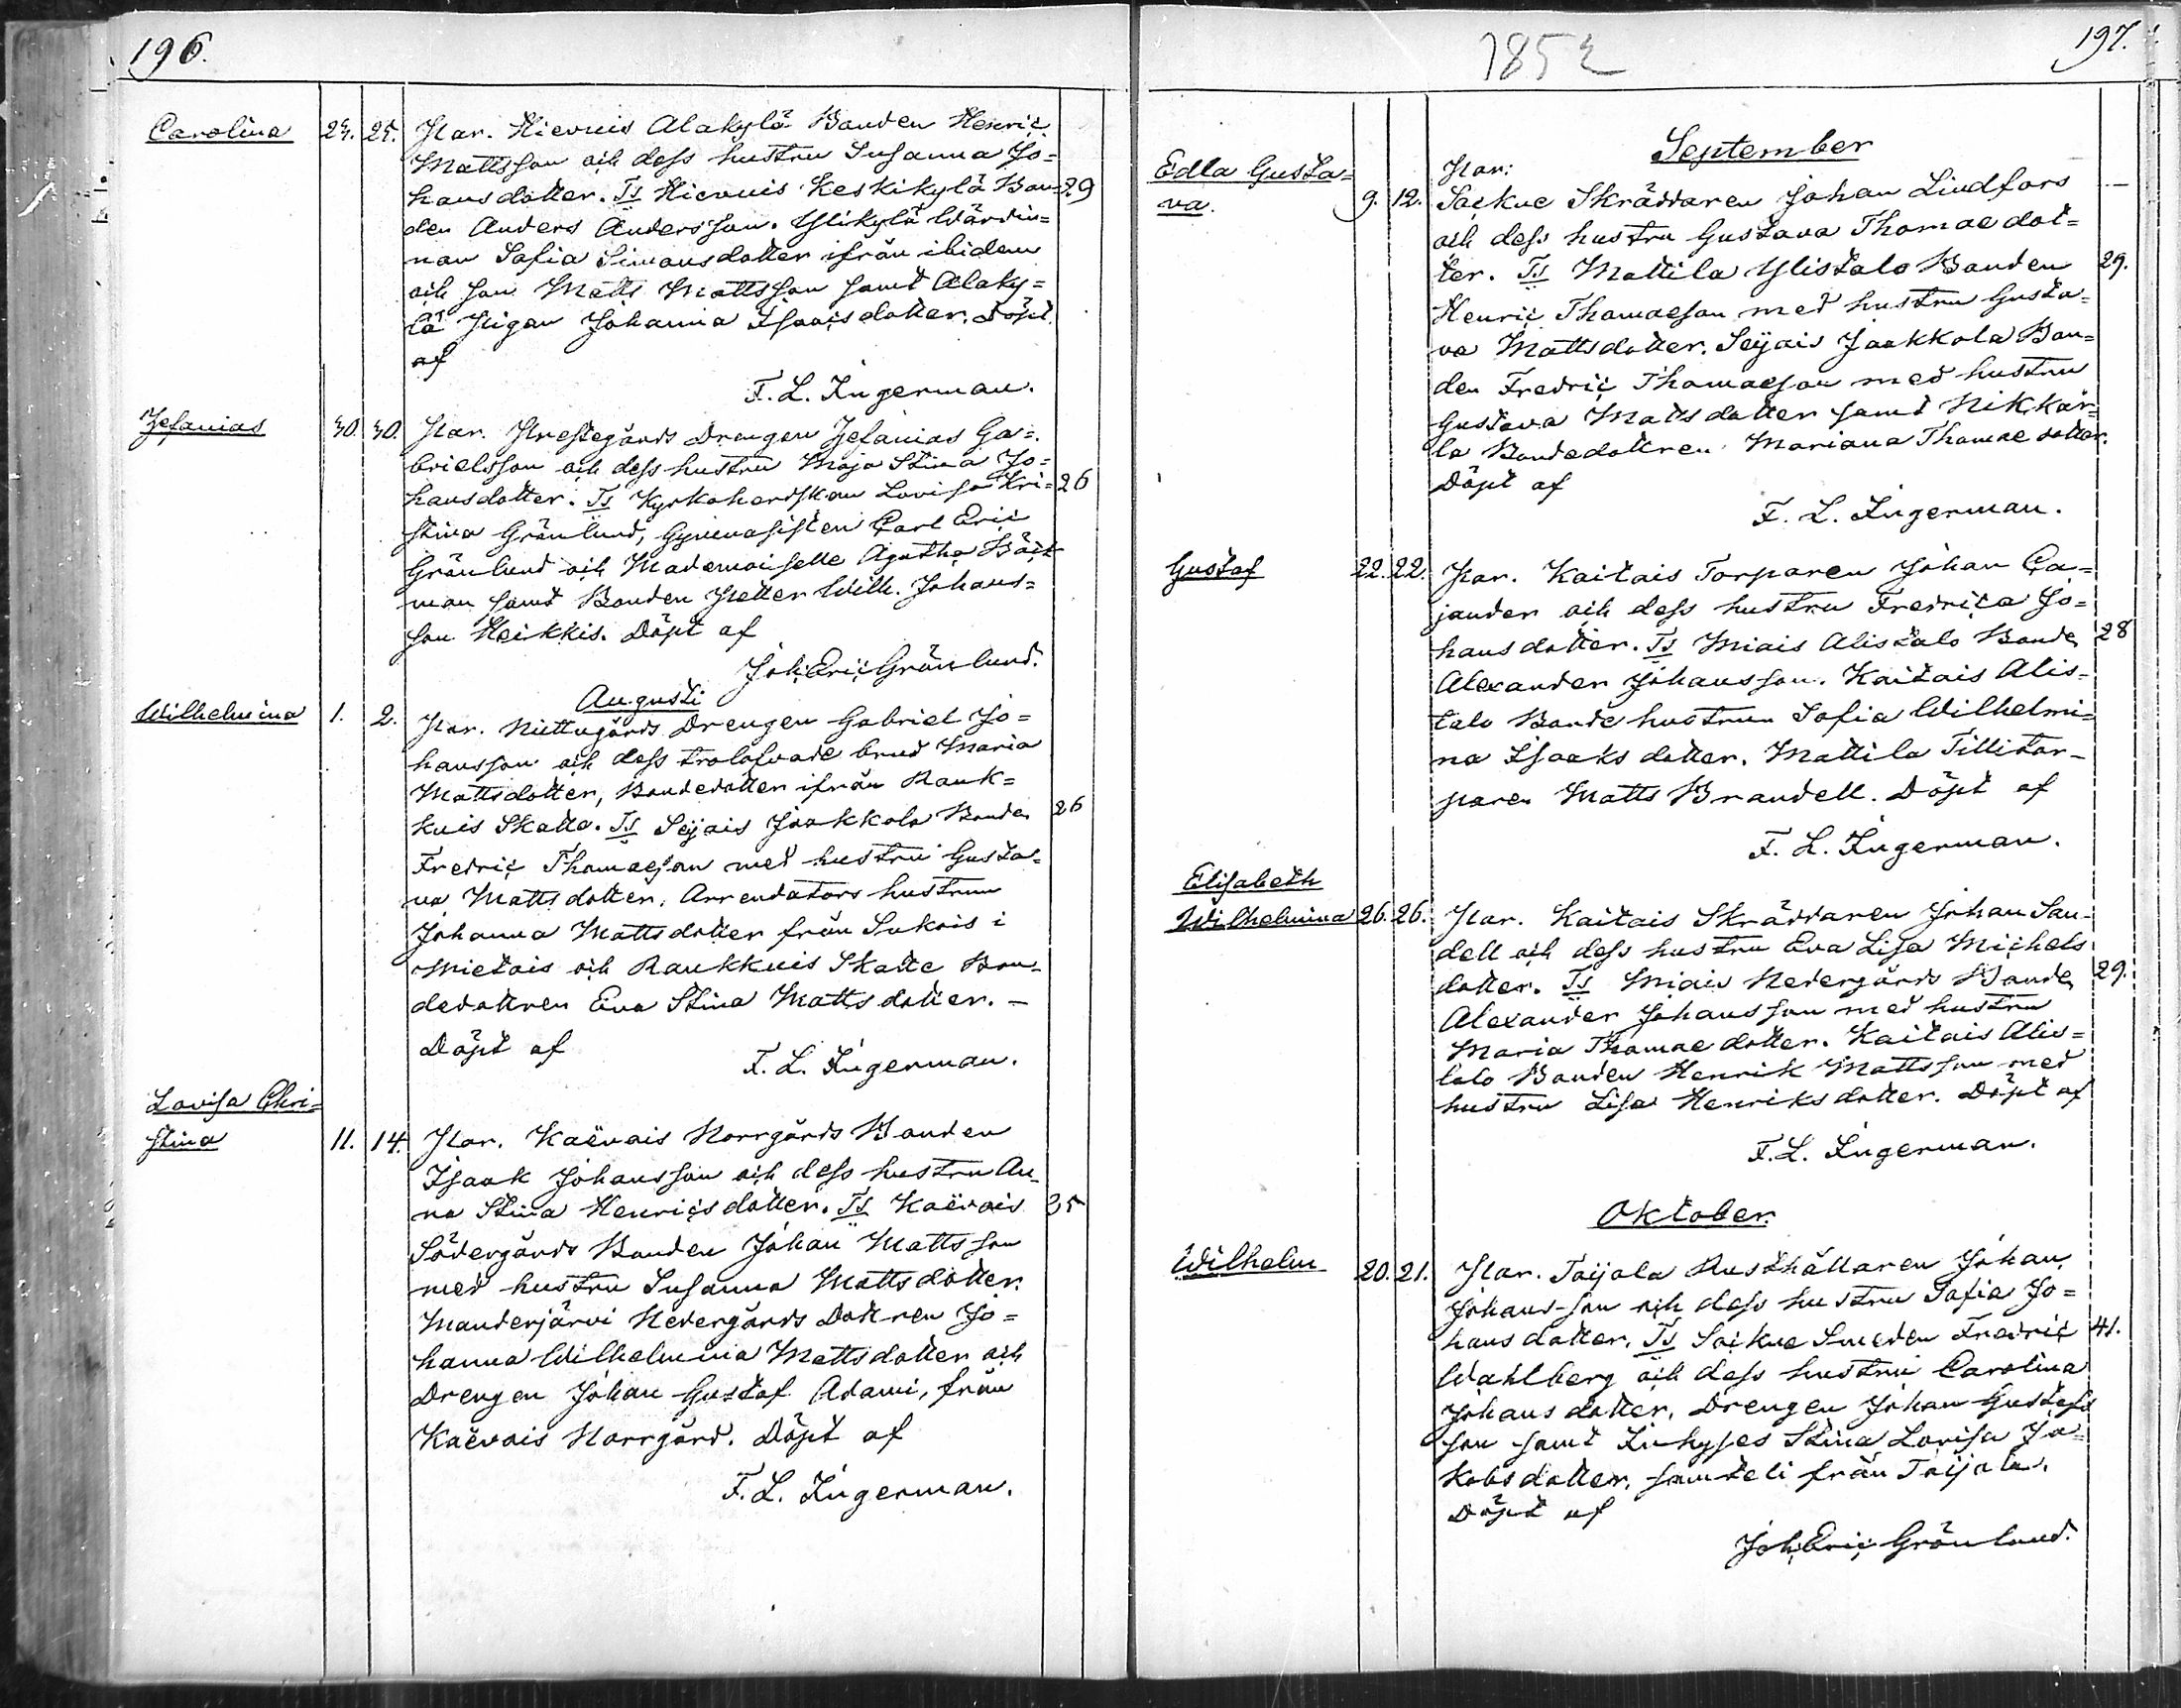 196.
Carolina 24. 25. Par. Hievuis Alakylä Bonden Henric
Mattsson och dess hustru Susanna Jo=
hansdotter. Ts Hievuis Keskikylä Bon= 29
den Anders Andersson. Ylikylä Wärdin=
nan Sofia Simonsdotter ifrån ibidem
och son Matts Mattsson samt Alaky=
lä Pigan Johanna Isaacsdotter. Döpt
af
F. L. Ingerman.
Zefanias 30. 30. Par. Prestegårds Drengen Zefanias Ga=
brielsson och dess hustru Maja Stina Jo=
hansdotter. Ts Kyrkoherdskan Lovisa Kri= 26
stina Grönlund, Gymnasisten Carl Eric
Grönlund och Mademoiselle Agatha Bäck
man samt Bonden Petter Wilh. Johans=
son Heikkis. Döpt af
Joh. Eric Grönlund.
Augusti
Wilhelmina 1. 2. Par. Nuttugårds Drengen Gabriel Jo=
hansson och dess trolofvade brud Maria
Mattsdotter, Bondedotter ifrån Rauk=
kuis Skatte. Ts Seyais Jaakkola Bonden 26
Fredric Thomaeson med hustru Gusta=
va Mattsdotter, Arrendators hustrun
Johanna Mattsdotter från Sukois i
Mietois och Raukkuis Skatte Bon=
dedottren Eva Stina Mattsdotter. –
Döpt af
F. L. Ingerman.
Lovisa Chri=
stina 11. 14. Par. Kaëvais Norrgårds Bonden
Isaak Johansson och dess hustru An=
na Stina Henricsdotter. Ts Kaëvais 35
Södergårds Bonden Johan Mattsson
med hustru Susanna Mattsdotter.
Manderjärvi Nedergårds Dottren Jo=
hanna Wilhelmina Mattsdotter och
Drengen Johan Gustaf Adami, från
Kaëvais Norrgård. Döpt af
F. L. Ingerman.
1852
197.
September
Edla Gusta=
va. 9. 12. Par:
Saekue Skräddaren Johan Lindfors —
och dess hustru Gustava Thomae dot=
ter. Ts Mattila Ylistalo Bonden 29.
Henric Thomaeson med hustru Gusta=
va Mattsdotter. Seyais Jaakkola Bon=
den Fredric Thomaeson med hustru
Gustava Mattsdotter samt Nikkär=
la Bondedottren Mariana Thomae dotter.
Döpt af
F. L. Ingerman.
Gustaf 22. 22. Par. Kaitais Torparen Johan Ca=
jander och dess hustru Fredrica Jo=
hansdotter. Ts Miais Alistalo Bonden 28
Alexander Johansson. Kaitais Alis=
talo Bonde hustrun Sofia Wilhelmi=
na Isaaksdotter. Mattila Tillitor=
paren Matts Brandell. Döpt af
F. L. Ingerman.
Elisabeth
Wilhelmina 26. 26. Par. Kaitais Skräddaren Johan San=
dell och dess hustru Eva Lisa Michels
dotter. Ts Miais Nedergårds Bonden 29.
Alexander Johansson med hustru
Maria Thomae dotter. Kaitais Alis=
talo Bonden Henrik Mattsson med
hustru Lisa Henriksdotter. Döpt af
F. L. Ingerman.
Oktober.
Wilhelm 20. 21. Par. Taijala Rusthållaren Johan
Johans-son och dess hustru Sofia Jo=
hansdotter. Ts Saekue Smeden Fredric 41.
Wahlberg och dess hustru Carolina
Johansdotter, Drengen Johan Gustafs
son samt Inhyses Stina Lovisa Ja=
kobsdotter, samteli från Taijala.
Döpt af
Joh. Eric Grönlund.